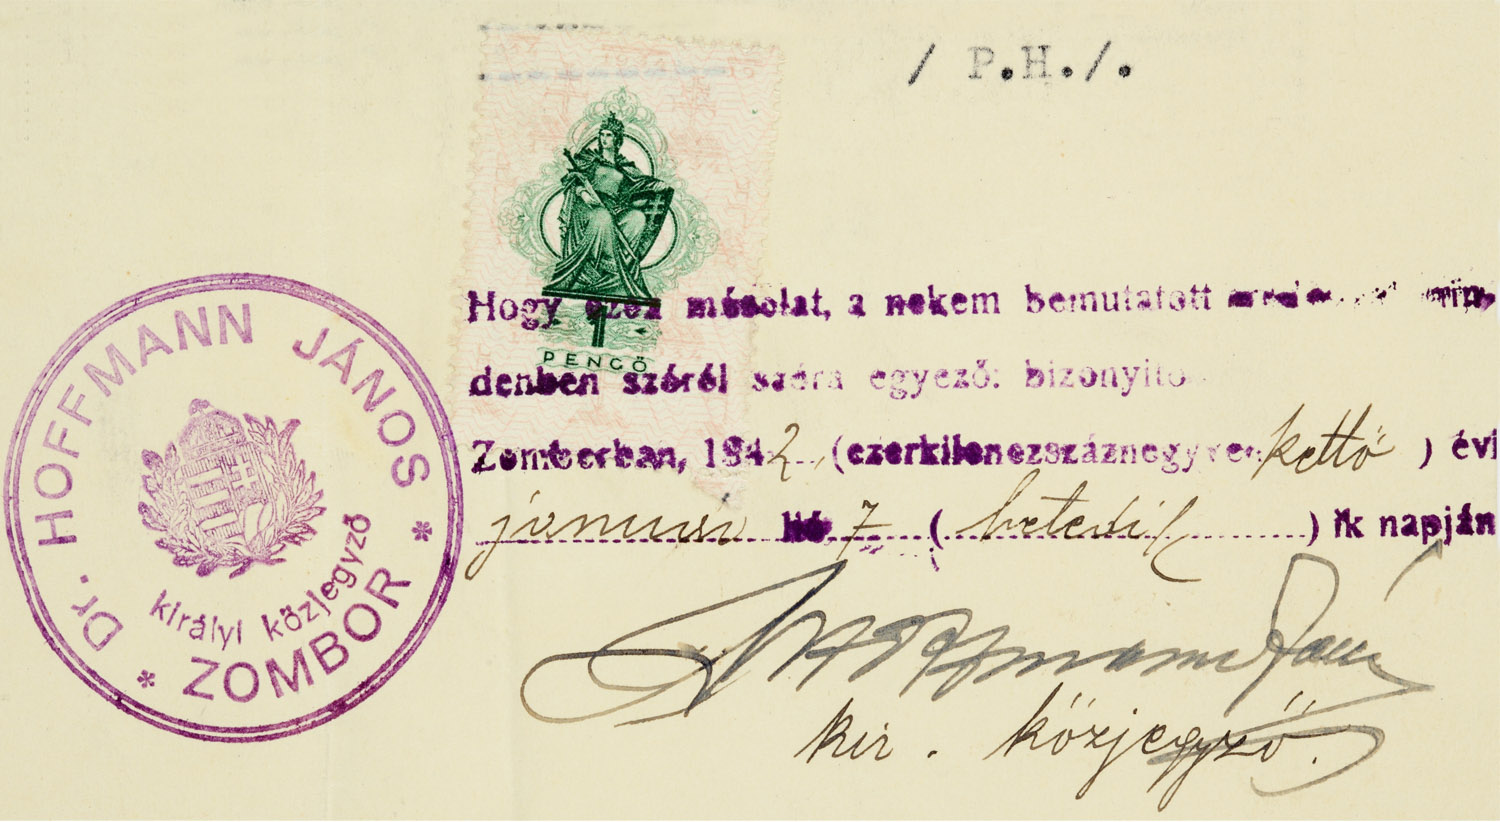 / P.H./.
1934
1
PENGŐ
Hogy ezen másolat, a nekem bemutatott
denben szóról szóra egyező: bizonyito
Zomborban, 1942. (ezerkilenczszáznegyven kettő ) évi
január hó 7 ( hetedik ) ik napján
Hoffmann János
kir. közjegyző.
Dr. HOFFMANN JÁNOS
királyi közjegyző
* ZOMBOR *